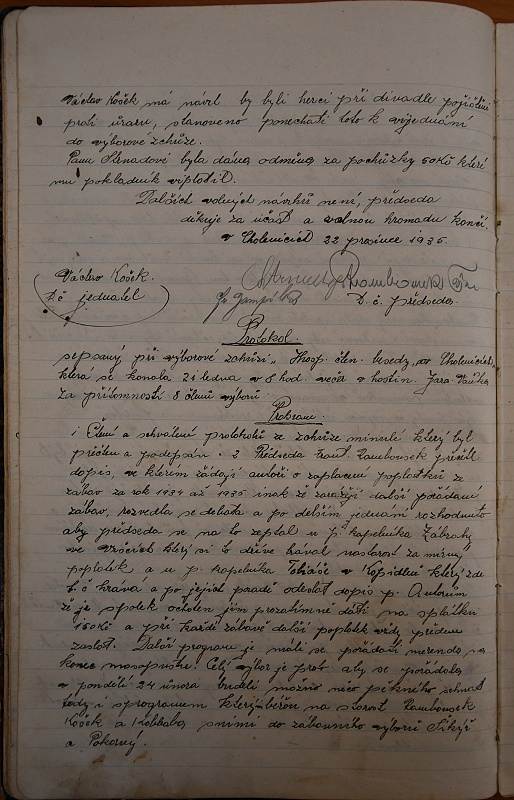 Václav Koček má návrh by byli herci při divadle pojištěni
proti úrazu, stanoveno ponechati toto k vyjednání
do výborové zchůze.
Panu Skřenadovi byla dána odměna za pochůzky 50 Kč které
mu pokladník viplotil.
Dalších volných návrhů není, předseda
děkuje za účast a valnou hromadu končí.
v Cholenicích 22 prosince 1935.
Václav Koček.
t.č. jednatel
t.č. předseda.
Protokol
sepsaný při výborové zchůzi „Hosp. čten. besedy" v Cholenicích,
která se konala 21 ledna v 8 hod. večer v hostin. Jara. Vaňka
za přítomnosti 8 členů výborů.
Program.
1 Čtení a schválení protokolů ze zchůze minulé který byl
přečten a podepsán. 2 Předseda Frant. Rambousek přečetl
dopis, ve kterém žádají autoři o zaplacení poplatků ze
zábav za rok 1934 až 1935 inak že zarazejí další pořádání
zábav, rozvedla se debata a po delším jednání rozhodnuto
aby předseda se na to zeptal u p. kapelníka Zábrahy
ve Vršcích který si to dříve brával nastarost za mírný
poplatek a u p. kapelníka Tobiáše v Kopidlně který zde
t.č hrává a po jejich poradě odeslat dopis p. Autorům
že je spolek ochoten jim prozatímně dáti na splátku
150 Kč a při každé zábavě další poplatek vždy předem
zaslat. Další programu je máli se pořádati merenda na
konec masopustu. Celý výbor je proto aby se pořádala
v pondělí 24 února budeli možno něco pěkného sehnat
tedy i sprogramem který si béřou na starost Rambousek
Koček a Kobbaba s nimi do zábavního výborů Šikýř
a Pokorný.